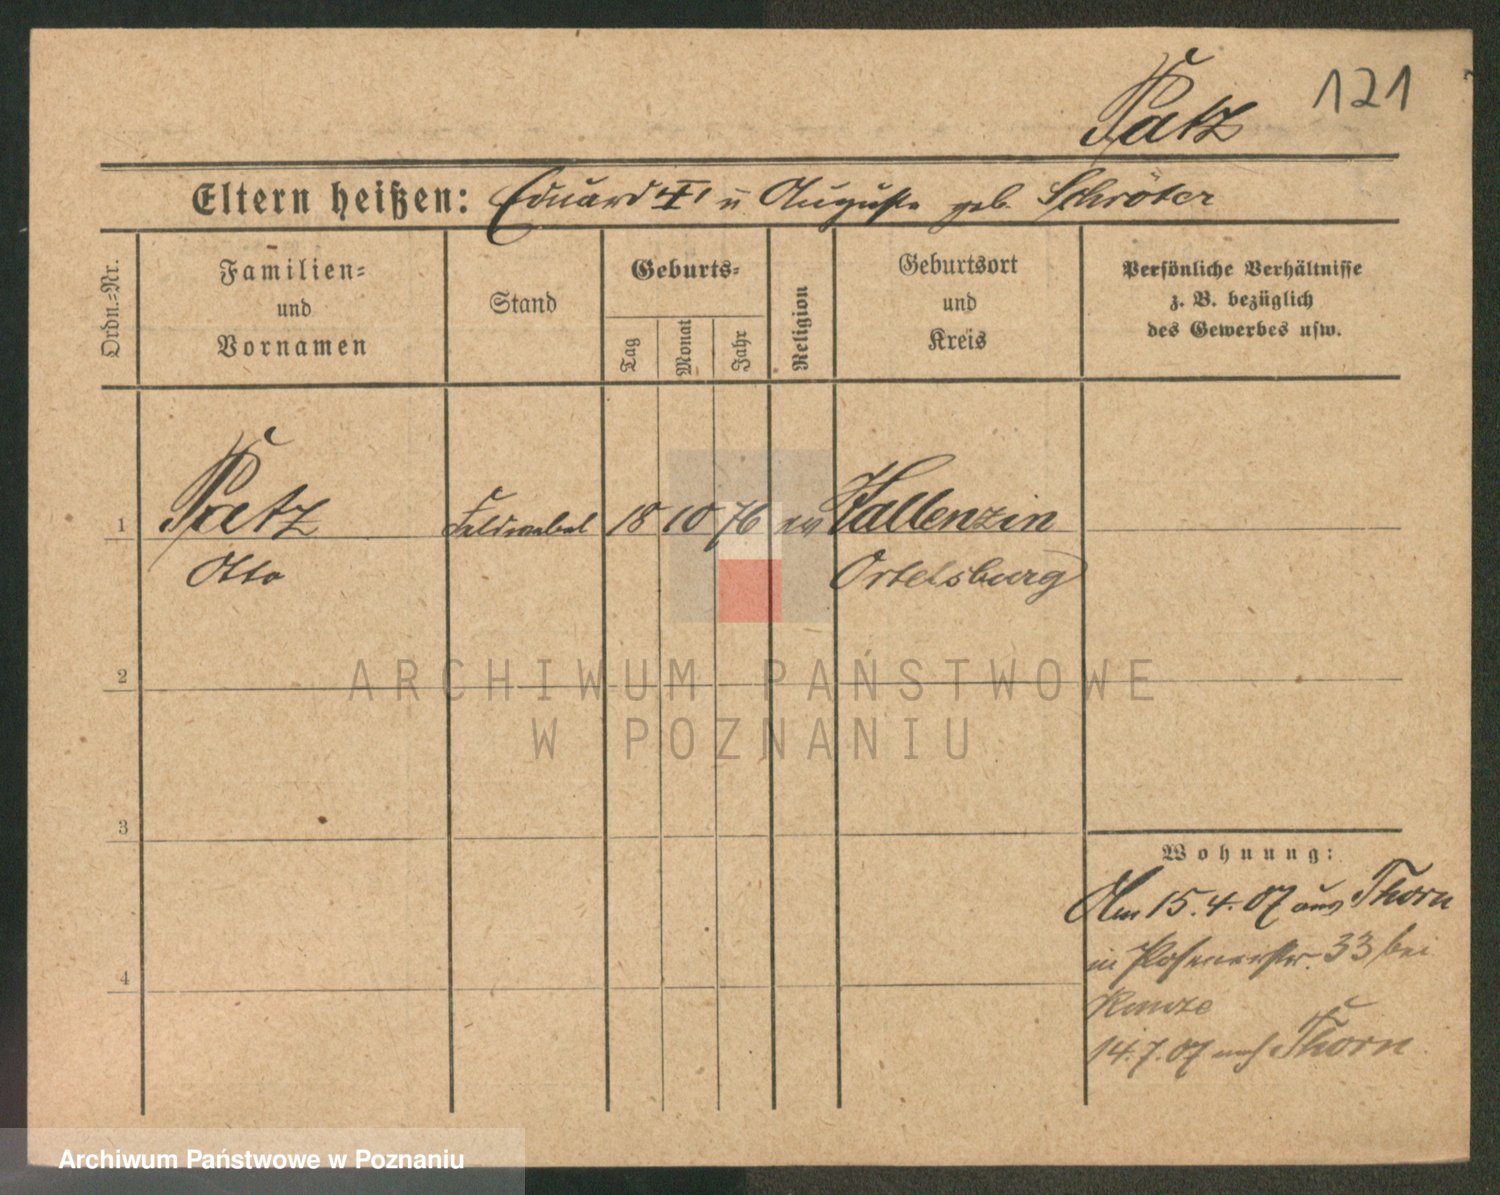 121
Patz
Eltern heißen: Eduard u Auguste geb. Schröter
Ordn.=Nr.
Familien=
und
Vornamen
Stand
Geburts=
Tag
Monat
Jahr
Religion
Geburtsort
und
Kreis
Persönliche Verhältnisse
z. B. bezüglich
des Gewerbes usw.
1 Patz Feldwebel 18 10 76 ev Wallenzin
Otto Ortelsburg
2
3
4
Wohnung:
Am 15.4.07 aus Thorn
in Posenerstr. 33 bei
14.7.07 nach Thorn
ARCHIWUM PAŃSTWOWE
W POZNANIU
Archiwum Państwowe w Poznaniu